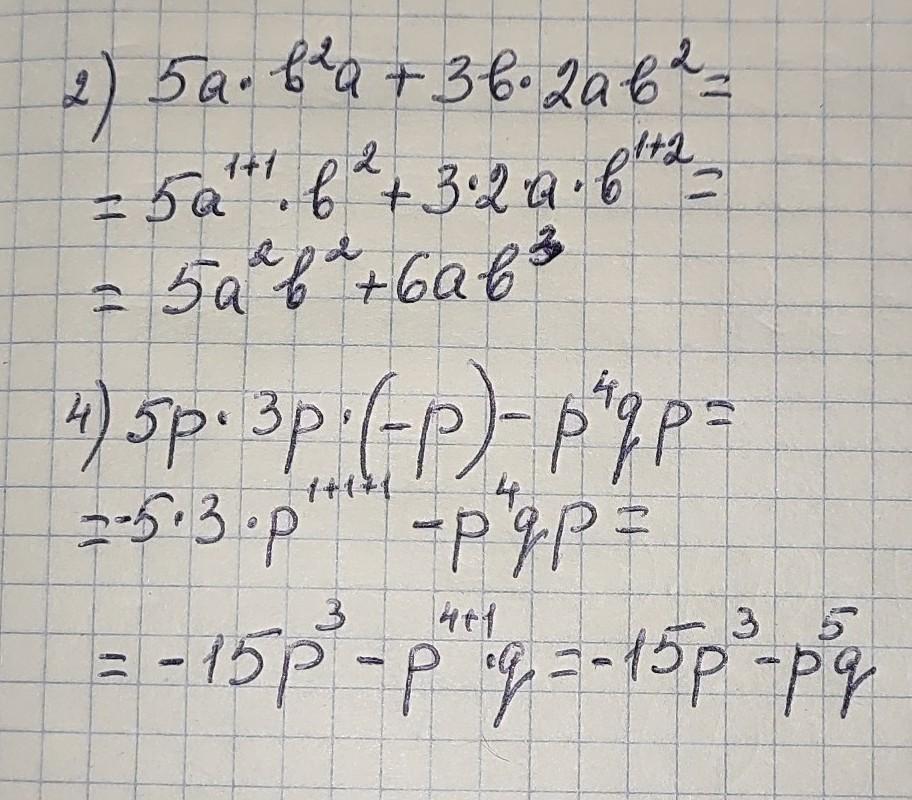 2) 5a · b²a + 3b · 2ab² =
= 5a¹⁺¹ · b² + 3 · 2 · a · b¹⁺² =
= 5a²b² + 6ab³
4) 5p · 3p · (-p) - p⁴qp =
= -5 · 3 · p¹⁺¹⁺¹ - p⁴qp =
= -15p³ - p⁴⁺¹ · q = -15p³ - p⁵q